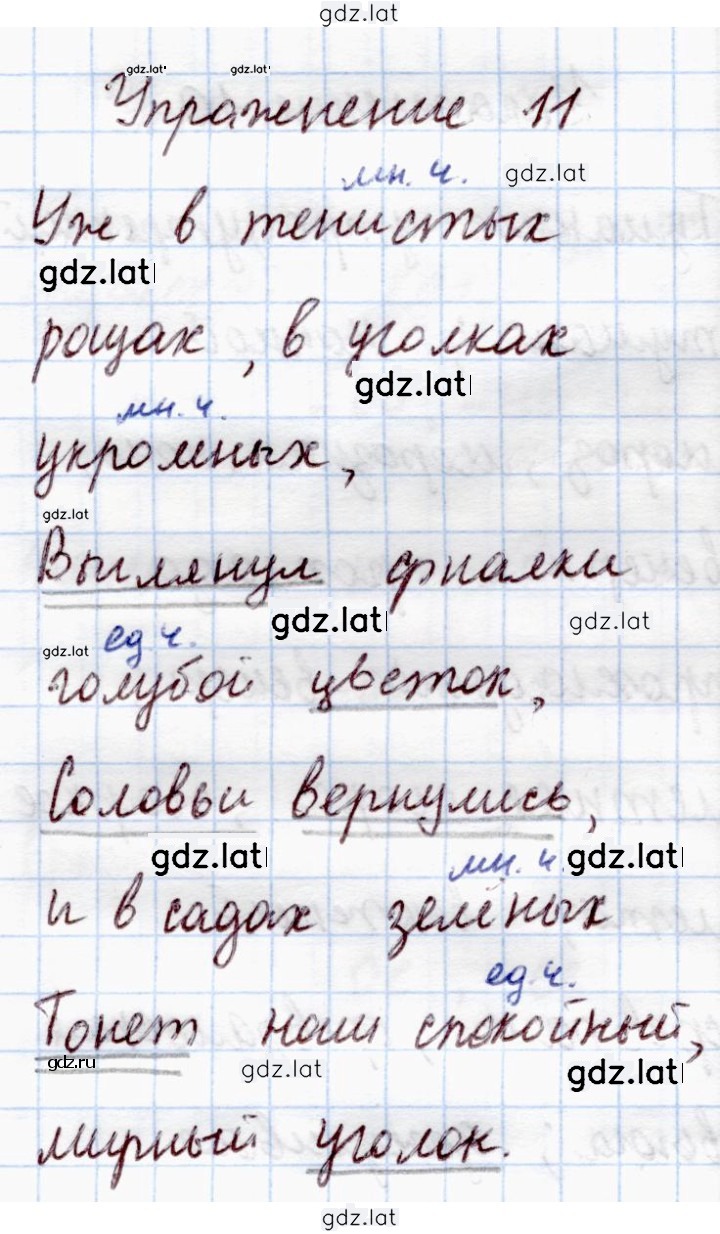 gdz.lat
gdz.lat gdz.lat
Упражнение 11
мн. ч. gdz.lat
Уж в тенистых
gdz.lat
рощах, в уголках
gdz.lat
мн. ч.
укромных,
gdz.lat
Выглянул фиалки
gdz.lat gdz.lat
gdz.lat ед ч.
голубой цветок,
Соловьи вернулись,
gdz.lat мн. ч. gdz.lat
и в садах зелёных
ед. ч.
Тонет наш спокойный,
gdz.ru gdz.lat gdz.lat
мирный уголок.
gdz.lat